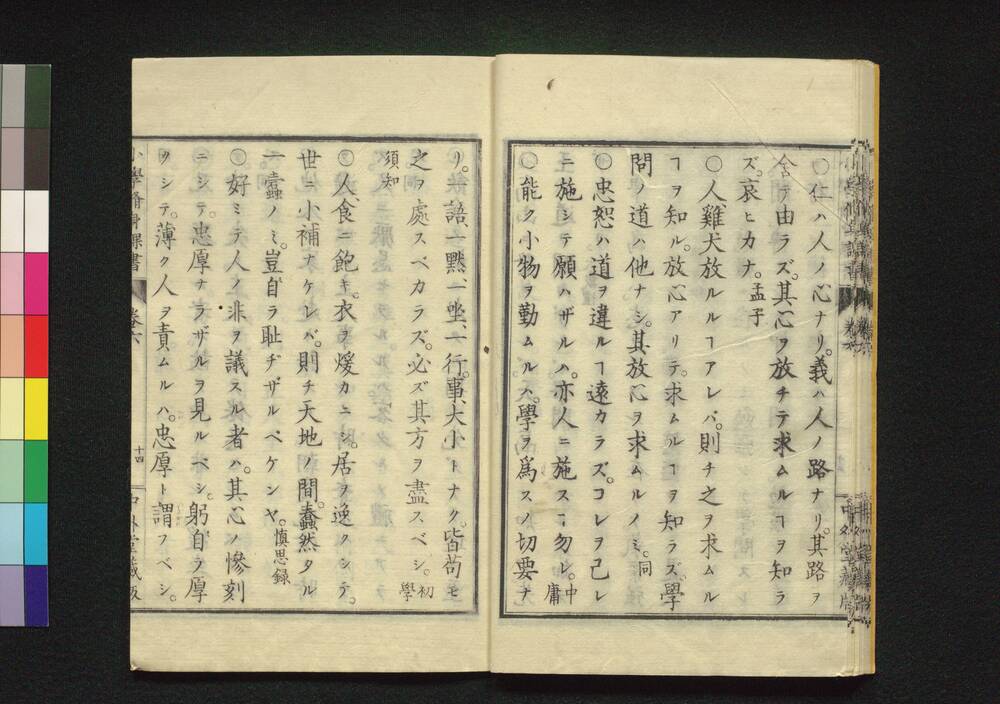 ○仁ハ人ノ心ナリ。義ハ人ノ路ナリ。其路ヲ
舍テ由ラズ。其心ヲ放チテ求ムルヿヲ知ラ
ズ。哀ヒカナ。孟子
○人雞犬放ルルヿアレバ。則チ之ヲ求ムル
ヿヲ知ル。放心アリテ。求ムルヿヲ知ラズ。學
問ノ道ハ他ナシ。其放心ヲ求ムルノミ。同
○忠恕ハ道ヲ違ルヿ遠カラズ。コレヲ己レ
ニ施シテ願ハザルハ。亦人ニ施スヿ勿レ。中庸
○能ク小物ヲ勤ムルハ。學ヲ爲スノ切要ナ
リ。一語、一黙、一坐、一行、事、大小トナク。皆苟モ
之ヲ處スベカラズ。必ズ其方ヲ盡スベシ。初學
須知
○人、食ニ飽キ。衣ヲ煖カニシ。居ヲ逸クシテ。
世ニ小補ナケレバ。則チ天地ノ間。蠢然タル
一蠹ノミ。豈自ラ耻ヂザルベケンヤ。慎思録
○好ミテ人ノ非ヲ議スル者ハ。其心ノ慘刻
ニシテ。忠厚ナラザルヲ見ルベシ。躬自ラ厚
クシテ。薄ク人ヲ責ムルハ。忠厚ト謂フベシ。
小學脩身課書 卷六 十四